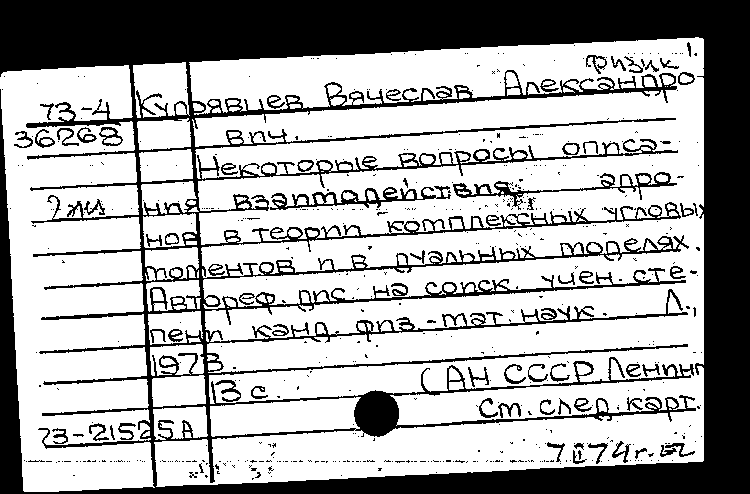 Физик 1.
73-4 Кудрявцев, Вячеслав Александро-
36268 вич.
Некоторые вопросы описа-
ния взаимодействия адро-
нов в теории комплексных угловых
моментов и в дуальных моделях.
Автореф. дис. на соиск. учен. сте-
пени канд. физ.-мат. наук. Л.,
1973.
13 с. (АН СССР. Ленинг
См. след. карт.
73-21525А
7 II 74 г.